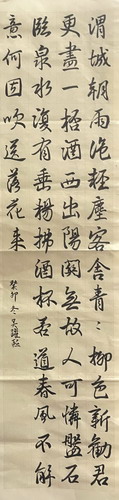 渭城朝雨浥輕塵客舍青〻柳色新勸君
更盡一杯酒西出陽關無故人可憐盤石
臨泉水復有垂楊拂酒杯若道春風不解
意何因吹送落花來
癸卯冬吳